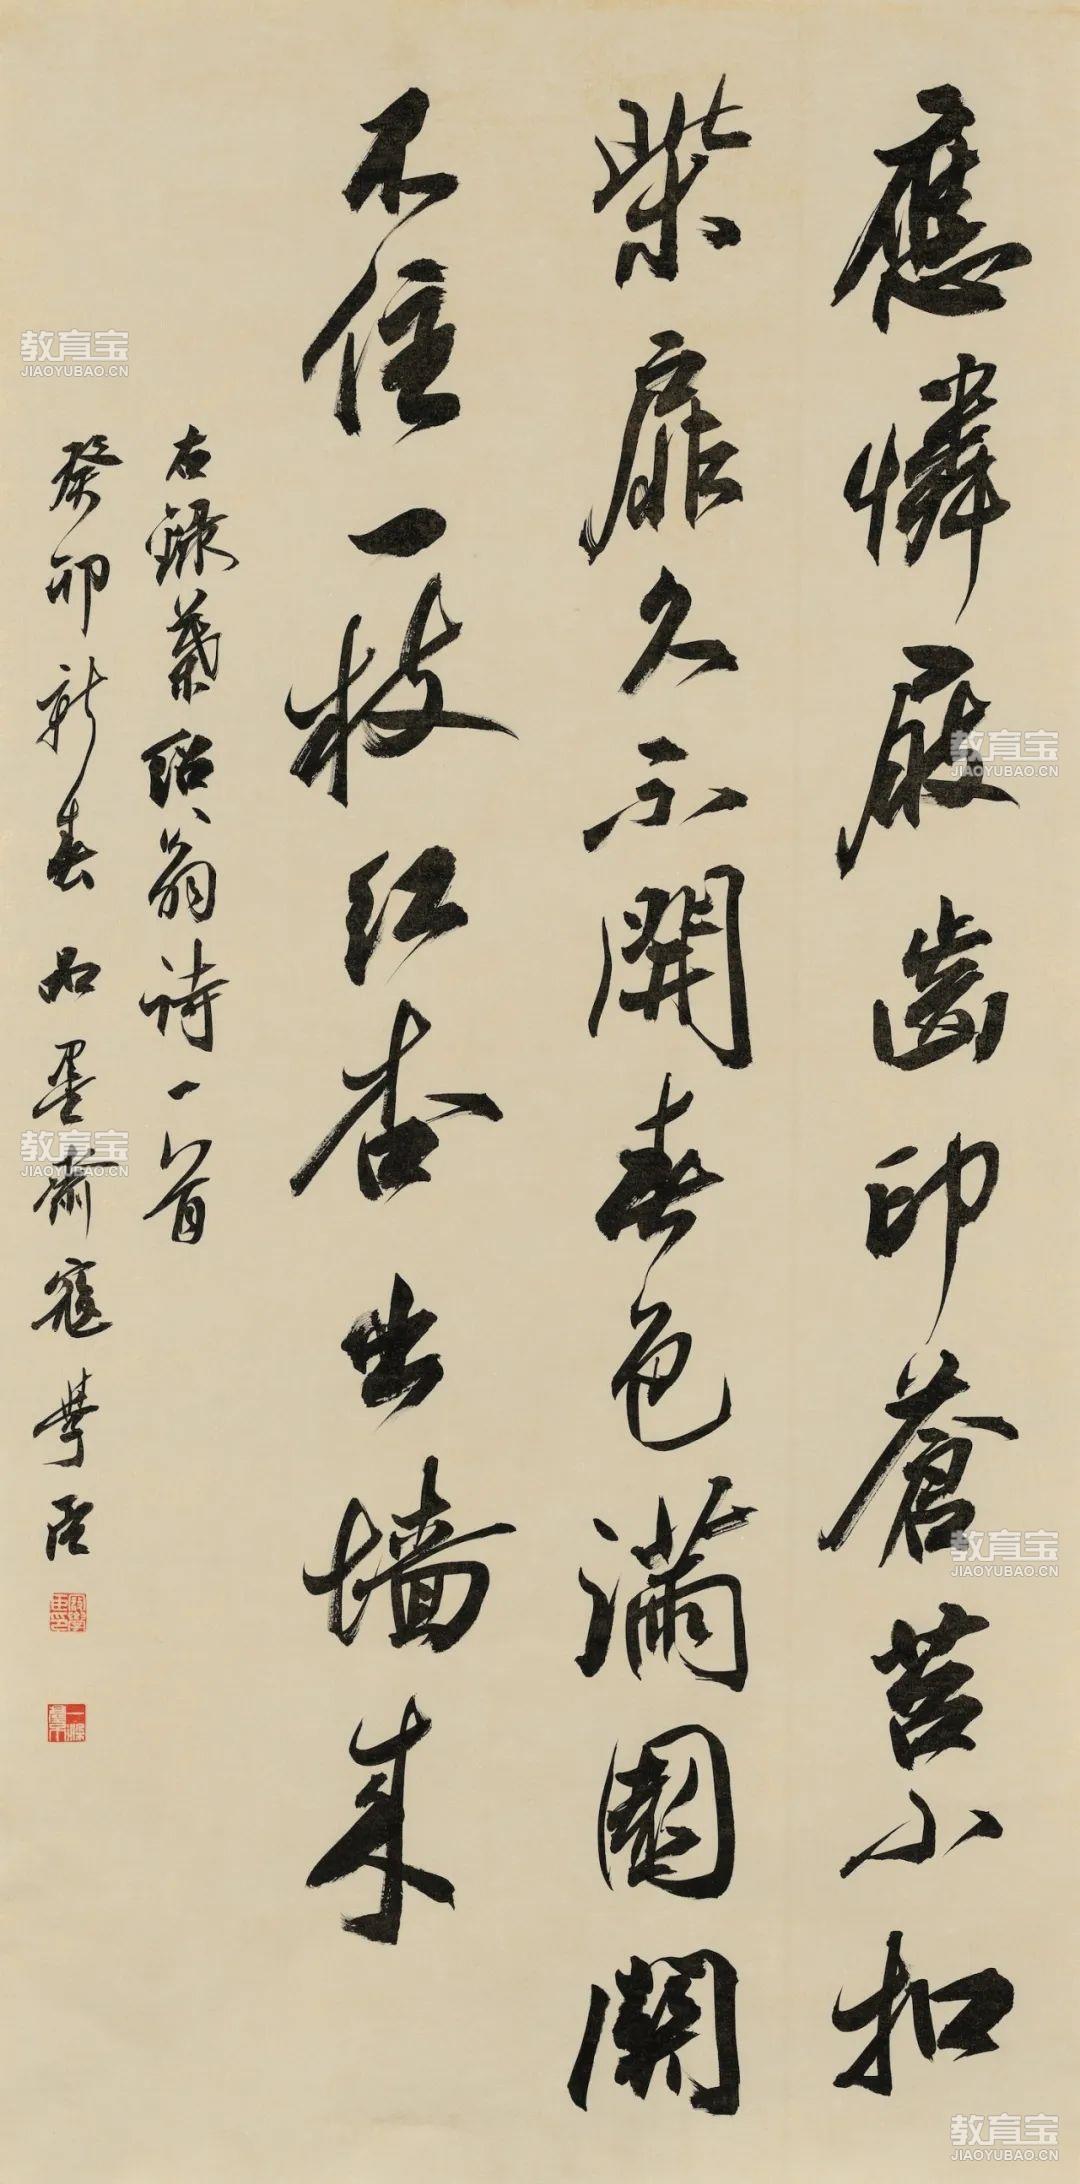 應憐屐齒印蒼苔小扣
柴扉久不開春色滿園關
不住一枝红杏出墙来
右錄葉紹翁詩一首
癸卯新春墨齋寇學臣
教育宝
JIAOYUBAO.CN
教育宝
JIAOYUBAO.CN
教育宝
JIAOYUBAO.CN
教育宝
JIAOYUBAO.CN
教育宝
JIAOYUBAO.CN